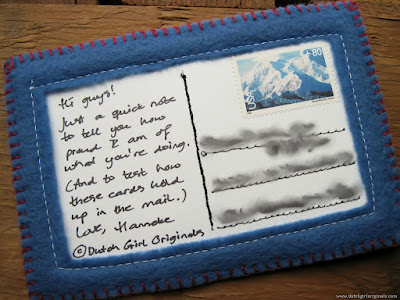 Hi guys!
Just a quick note
to tell you how
proud I am of
what you're doing.
(And to test how
these cards hold
up in the mail.)
Love, Hanneke
©Dutch Girl Originals
+80
www.dutchgirloriginals.com